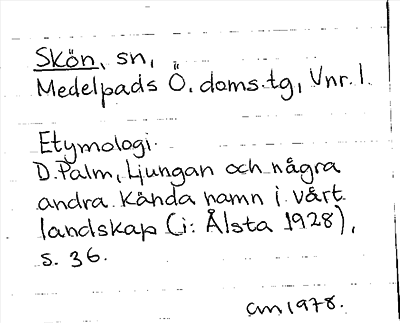 Skön, sn,
Medelpads Ö. doms.tg, Vnr. 1
Etymologi.
D. Palm, Ljungan och några
andra kända namn i vårt
landskap (i: Ålsta 1928),
s. 36.
am 1978.